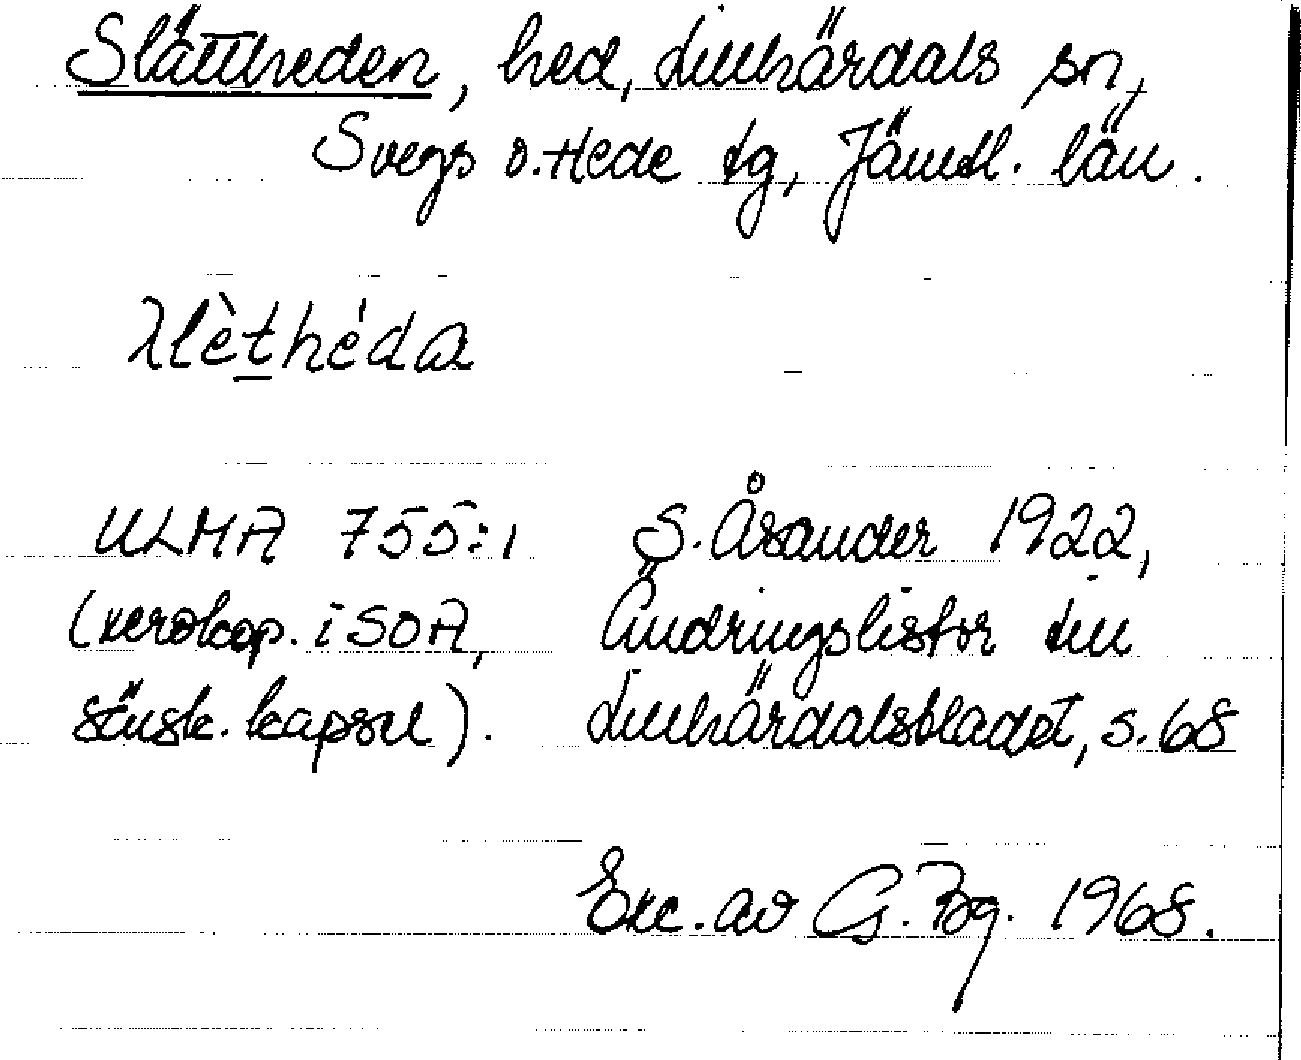 Slättheden, hed, Lillhärdals sn,
Svegs o. Hede tg, Jämtl. län.
ULMA 755:1 S. Åsander 1922,
(xerokop. i SOA, Ändringslistor till
särsk. kapsel). Lillhärdalsbladet, s. 68
Exc. av G. Bg. 1968.